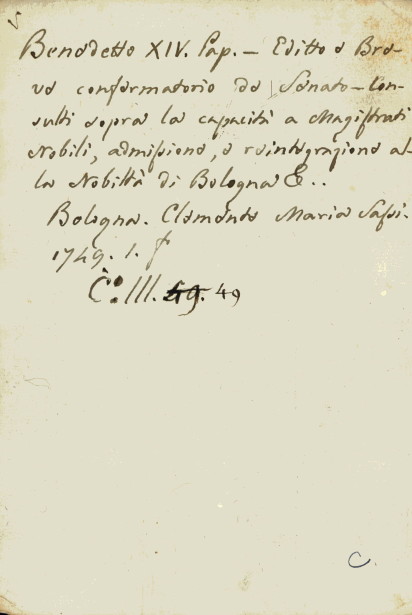 Benedetto XIV. Pap. — Editto e Bre-
ve confermatorio de Senato-Con-
sulti sopra la capacità a Magistrati
Nobili, admissione, e reintegrazione al-
la Nobiltà di Bologna &..
Bologna. Clemente Maria Sassi.
1749. 1. f
C. III. 49. 49
C.